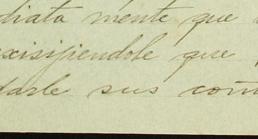 diata mente que
exisijiendole que
darle sus cont